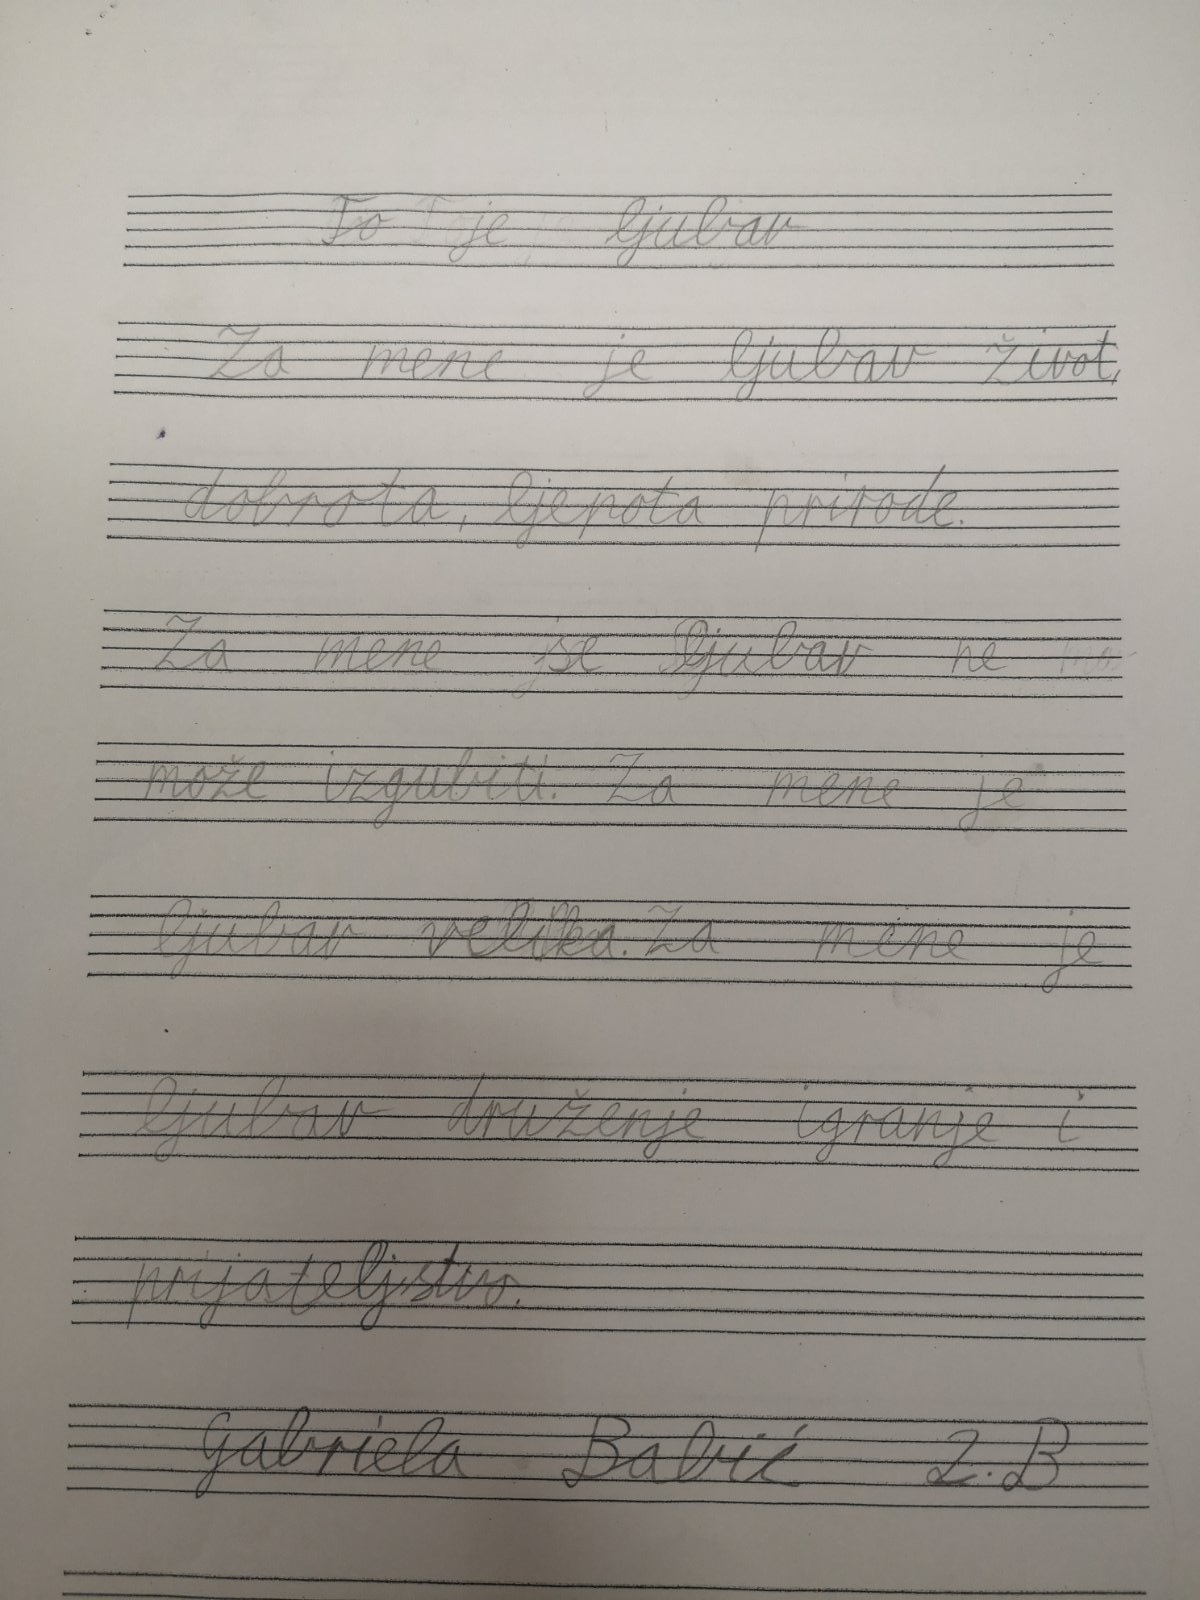 To je ljubav
Za mene je ljubav život,
dobrota, ljepota prirode.
Za mene se ljubav ne
može izgubiti. Za mene je
ljubav velika. Za mene je
ljubav druženje igranje i
prijateljstvo.
Gabriela Babić 2.B